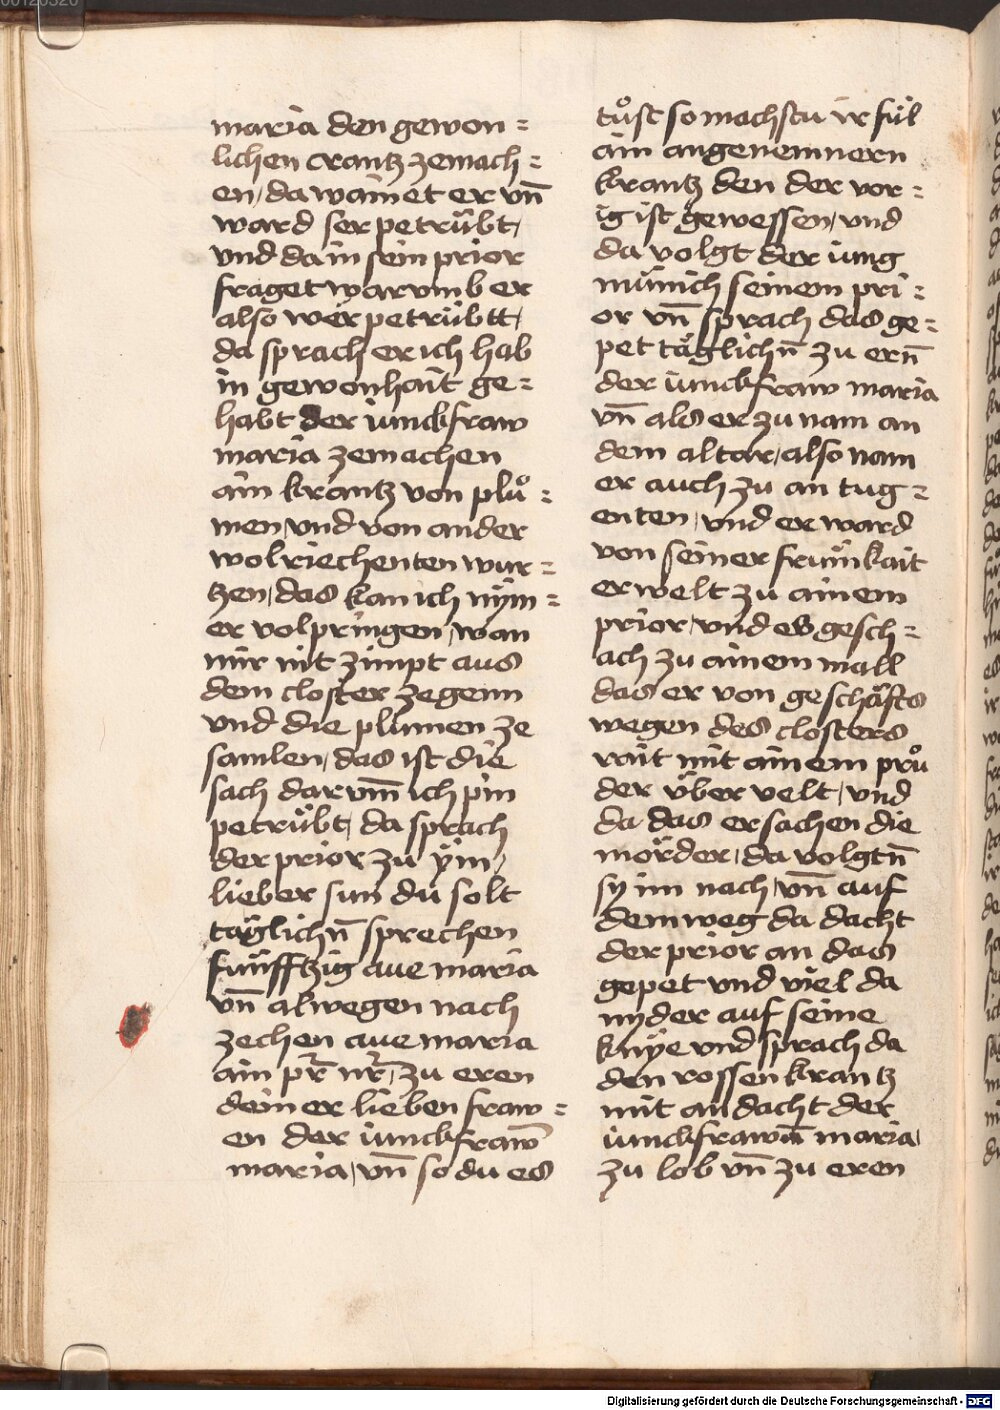 maria den gewon =
lichen crantz zemach =
en, da wainet er vn̄
ward ser petrübt,
vnd da in sein prior
fraget warvmb er
also wer petrübtt,
da sprach er ich hab
in gewonhait ge =
habt der iunckfraw
maria zemachen
ain krantz von plů =
men, vnd von ander
wolriechenten wur =
tzen, das kan ich nÿm =
er volpringen, wan
mir nit zimpt aus
dem closter zegenn
vnd die plumen ze
samlen, das ist die
sach darvm̄ ich pin
petrübt, da sprach
der prior zu ÿm,
lieber sun du solt
täglichn̄ sprechen
fünfftzig aue maria
vn̄ alwegen nach
zechen aue maria
ain pr̄ nr̄, zu eren
deiner lieben fraw =
en der iunckfraw̄
maria, vn̄ so du es
tůst so machstu ir fül
ain angenemnern
krantz den der vor =
ig ist gewessen, vnd
da volgt der iung
münich seinem pri =
or vn̄ sprach das ge =
pet täglichn̄ zu ern̄
der iunckfraw maria
vn̄ als er zu nam an
dem altar, also nam
er auch zu an tug =
enten, vnd er ward
von seiner frümkait
erwelt zu ainem
prior, vnd es gesch =
ach zu ainem mall
das er von geschäfts
wegen des closters
rait mit ainem prů
der über velt, vnd
da das ersachen die
mörder, da volgtn̄
sy im nach, vn̄ auf
dem weg da dacht
der prior an das
gepet vnd viel da
nyder auf seine
knÿe vnd sprach da
den rossen krantz
mit andacht der
iunckfrawn̄ maria,
zu lob vn̄ zu eren
Digitalisierung gefördert durch die Deutsche Forschungsgemeinschaft - DFG